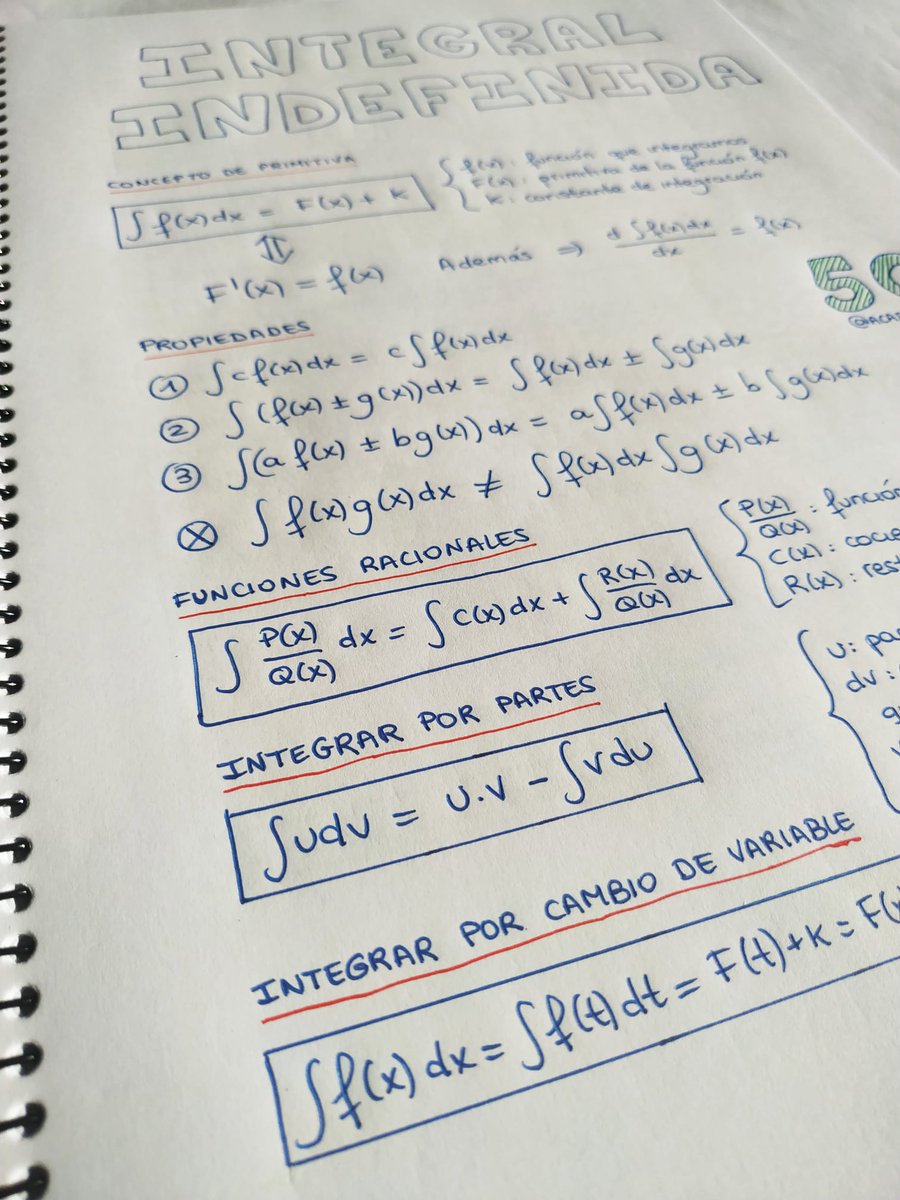 INTEGRAL
INDEFINIDA
CONCEPTO DE PRIMITIVA
∫f(x)dx = F(x) + K
f(x): función que integramos
F(x): primitiva de la función f(x)
K: constante de integración
⇕
F'(x) = f(x)
Además ⇒ d∫f(x)dx/dx = f(x)
PROPIEDADES
① ∫cf(x)dx = c∫f(x)dx
② ∫(f(x) ± g(x))dx = ∫f(x)dx ± ∫g(x)dx
③ ∫(a f(x) ± bg(x))dx = a∫f(x)dx ± b∫g(x)dx
⊗ ∫f(x)g(x)dx ≠ ∫f(x)dx∫g(x)dx
FUNCIONES RACIONALES
∫P(x)/Q(x) dx = ∫C(x)dx + ∫R(x)/Q(x) dx
P(x)/Q(x): función
C(x):
R(x):
INTEGRAR POR PARTES
∫udv = u.v - ∫vdu
u:
dv:
INTEGRAR POR CAMBIO DE VARIABLE
∫f(x)dx = ∫f(t)dt = F(t)+K = F(x